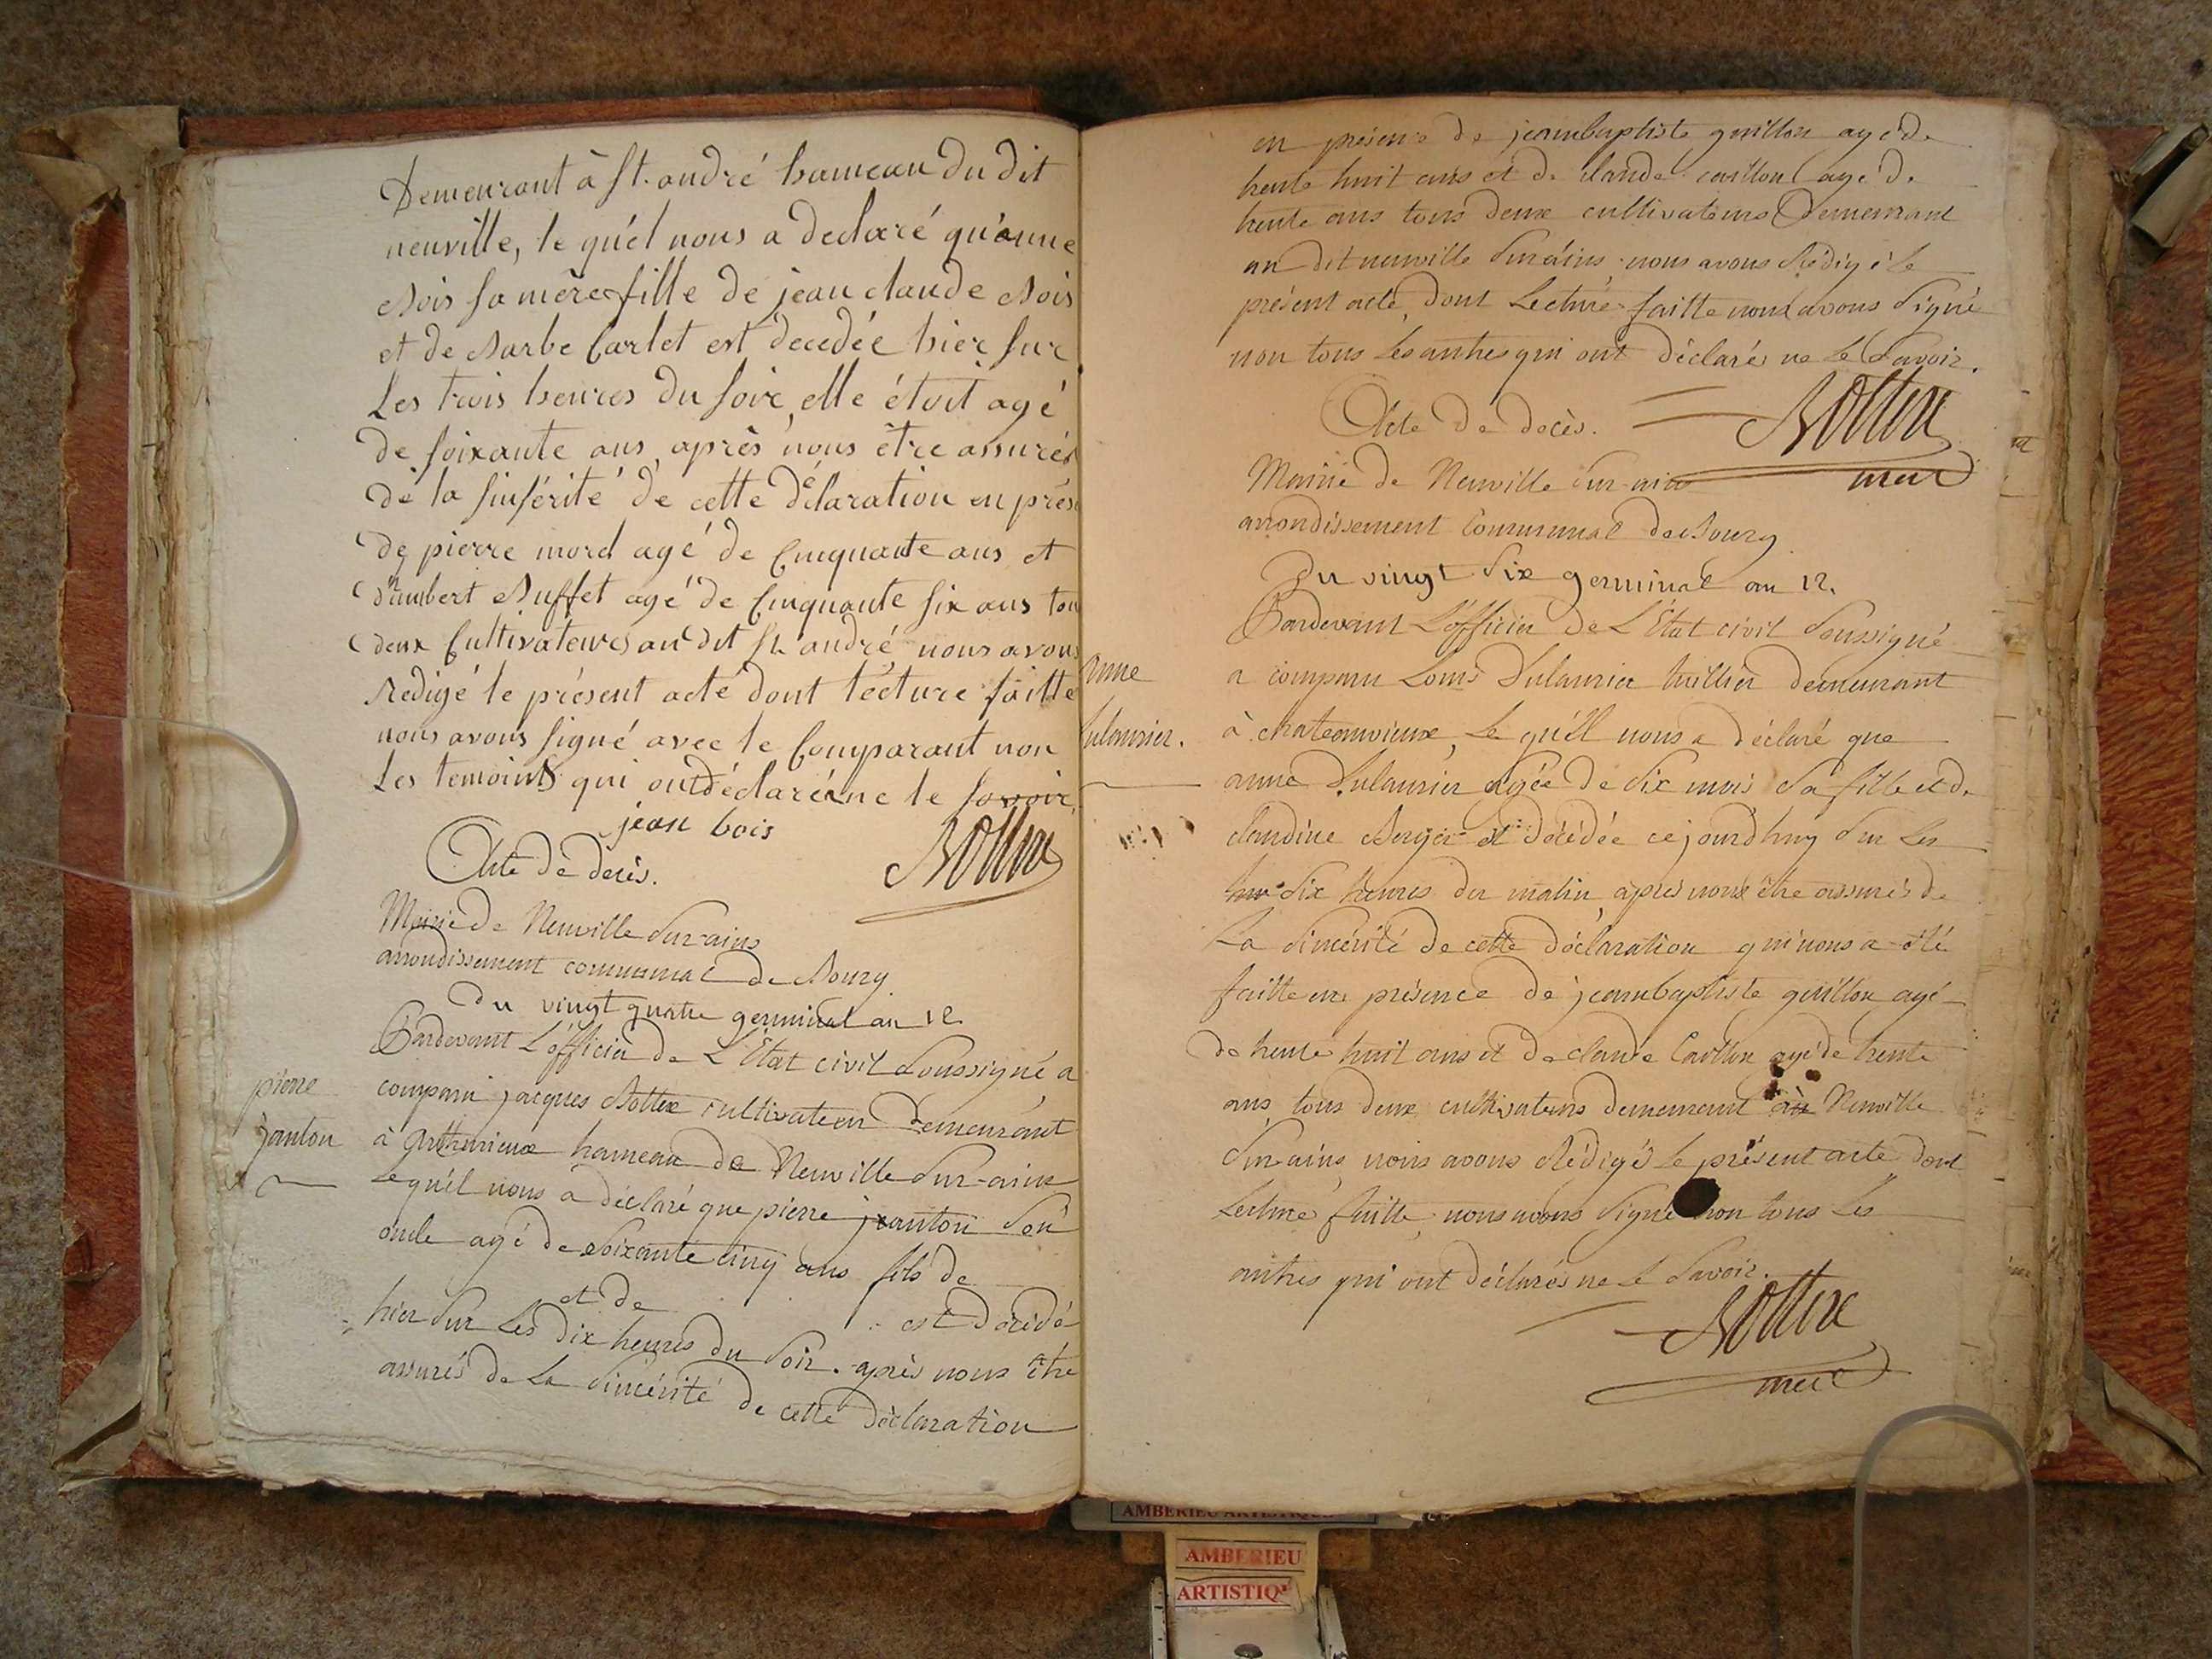 Demeurant à St. andré hameau du dit
neuville, le quél nous a declaré qu'anne
Bois sa mère fille de jean claude Bois
et de Barbe Carlet est decedée hier sur
Les trois heures du soir, elle étoit agé
de soixante ans, après nous être assurés
de la sinsérité de cette déclaration en prés
de pierre morel agé de Cinquante ans et
d'humbert Buffet agé de Cinquante six ans tou
deux Cultivateurs au dit St. andré nous avons
Redigé le présent acte dont lécture faitte
nous avons signé avec le Comparant non
Les temoins qui ont déclaré ne le savoir
jean bois
Bottex
Acte de decès.
Mairie de Neuville sur-ains
arrondissement communal de Bourg
Du vingt quatre germinal an 12
Pardevant L'officier de L'Etat civil soussigné a
pierre
janton
comparu jacques Bottex cultivateur Demeurant
à hameau de Neuville sur-ains
Lequél nous a déclaré que pierre janton son
oncle agé de soixante cinq ans fils de
et de est décédé
hier sur Les dix heures du soir. après nous être
assurés de La sincérité de cette déclaration
en présence de jeanbaptiste guillon agé de
trente huit ans et de claude agé de
trente ans tous deux cultivateurs Demeurant
au dit neuville sur-ains nous avons Rédigé le
présent acte, dont Lecture faitte nous avons signé
non tous Les autres qui ont déclarés ne Le savoir.
Acte de decès.
Bottex
mere
Mairie de Neuville sur-ains
arrondissement Communal de Bourg
Du vingt six germinal an 12.
Pardevant L'officier de L'État civil soussigné
anne
Dulaurier.
a comparu Louis Dulaurier tuillier demeurant
à chateauvieux, Le quél nous a déclaré que
anne Dulaurier agée de six mois sa fille et de
claudine Berger est décédée ce jourdhuy sur Les
six heures du matin, après nous être assurés de
La sincérité de cette déclaration qui nous a été
faitte en présence de jeanbaptiste guillon agé
de trente huit ans et de claude agé de trente
ans tous deux cultivateurs demeurant à Neuville
sur-ains, nous avons Rédigé le présent acte dont
Lecture faitte, nous avons signé non tous Les
autres qui ont déclarés ne Le savoir.
Bottex
mere
AMBERIEU ARTISTIQUE
AMBERIEU
ARTISTIQ